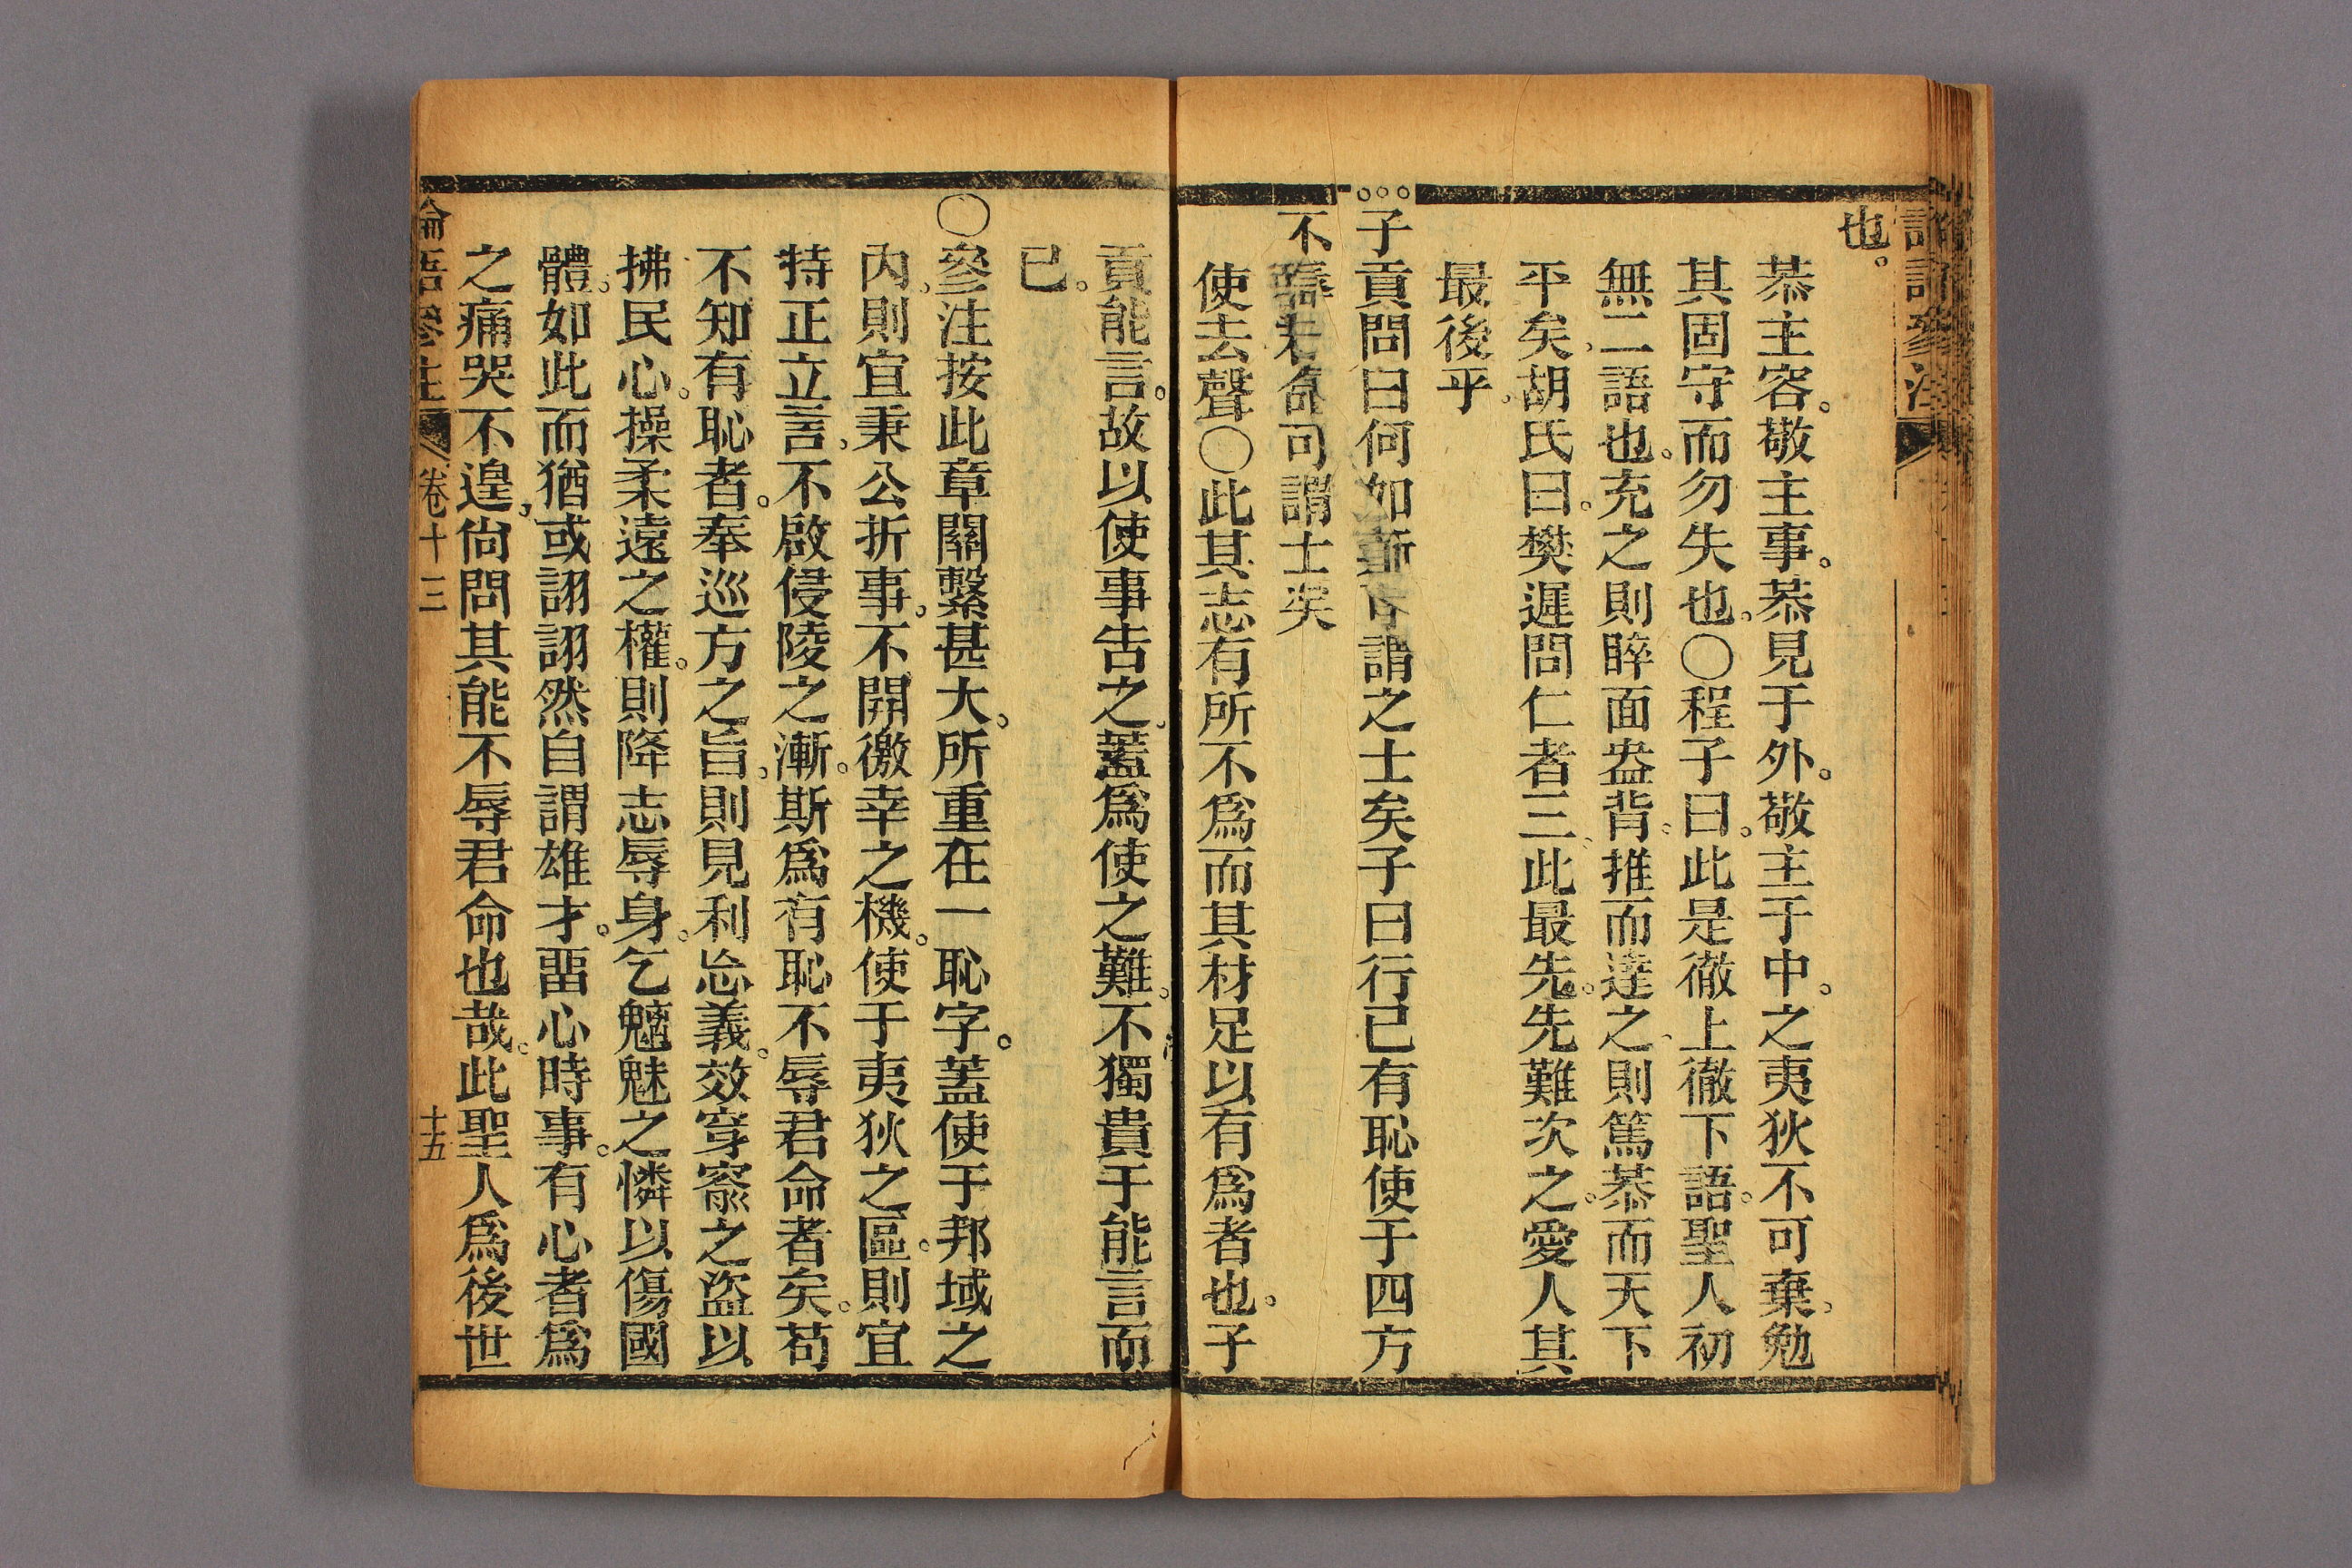 也。
恭主容。敬主事。恭見于外。敬主于中。之夷狄不可棄。勉
其固守而勿失也。○程子曰。此是徹上徹下語。聖人初
無二語也。充之則睟面盎背。推而達之。則篤恭而天下
平矣。胡氏曰。樊遲問仁者三。此最先。先難次之。愛人其
最後乎。
子貢問曰何如斯可謂之士矣子曰行己有恥使于四方
不辱君命可謂士矣
使去聲○此其志有所不爲而其材足以有爲者也。子
貢能言。故以使事告之。蓋爲使之難。不獨貴于能言而
已。
○參注按此章關繫甚大。所重在一恥字。蓋使于邦域之
內。則宜秉公折事。不開徼幸之機。使于夷狄之區。則宜
持正立言。不啟侵陵之漸。斯爲有恥不辱君命者矣。苟
不知有恥者。奉巡方之旨。則見利忘義。效穿窬之盜以
拂民心。操柔遠之權。則降志辱身。乞魑魅之憐以傷國
體。如此而猶或詡詡然自謂雄才。畱心時事。有心者爲
之痛哭不遑。尙問其能不辱君命也哉。此聖人爲後世
論語參注 卷十三 十五